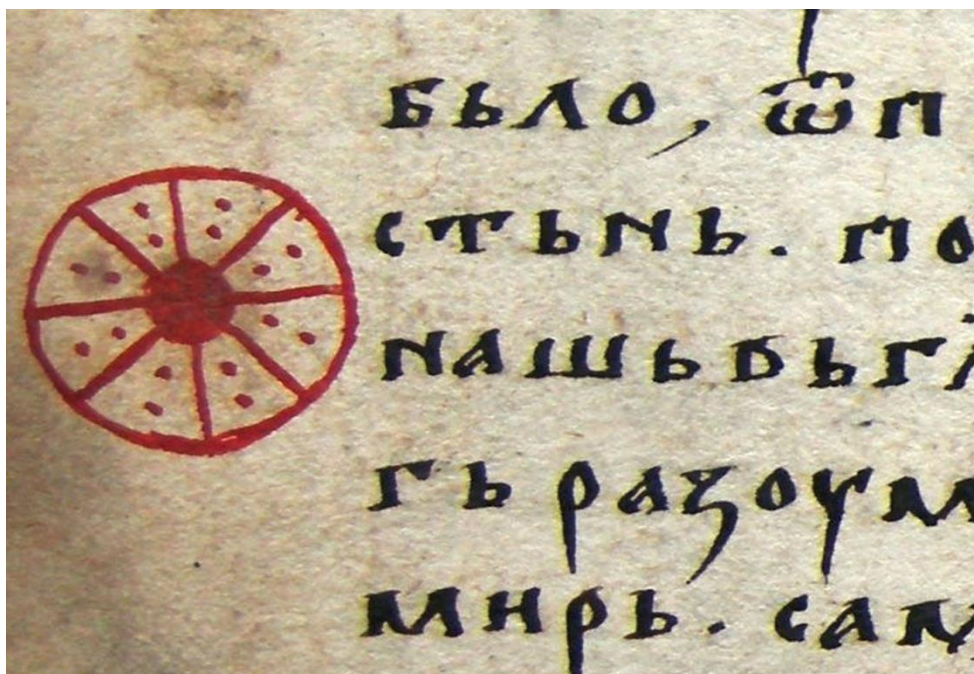 бьло, ѿп
стьнь. по
нашьвьгл
гь раꙁоѵм
мирь. сам